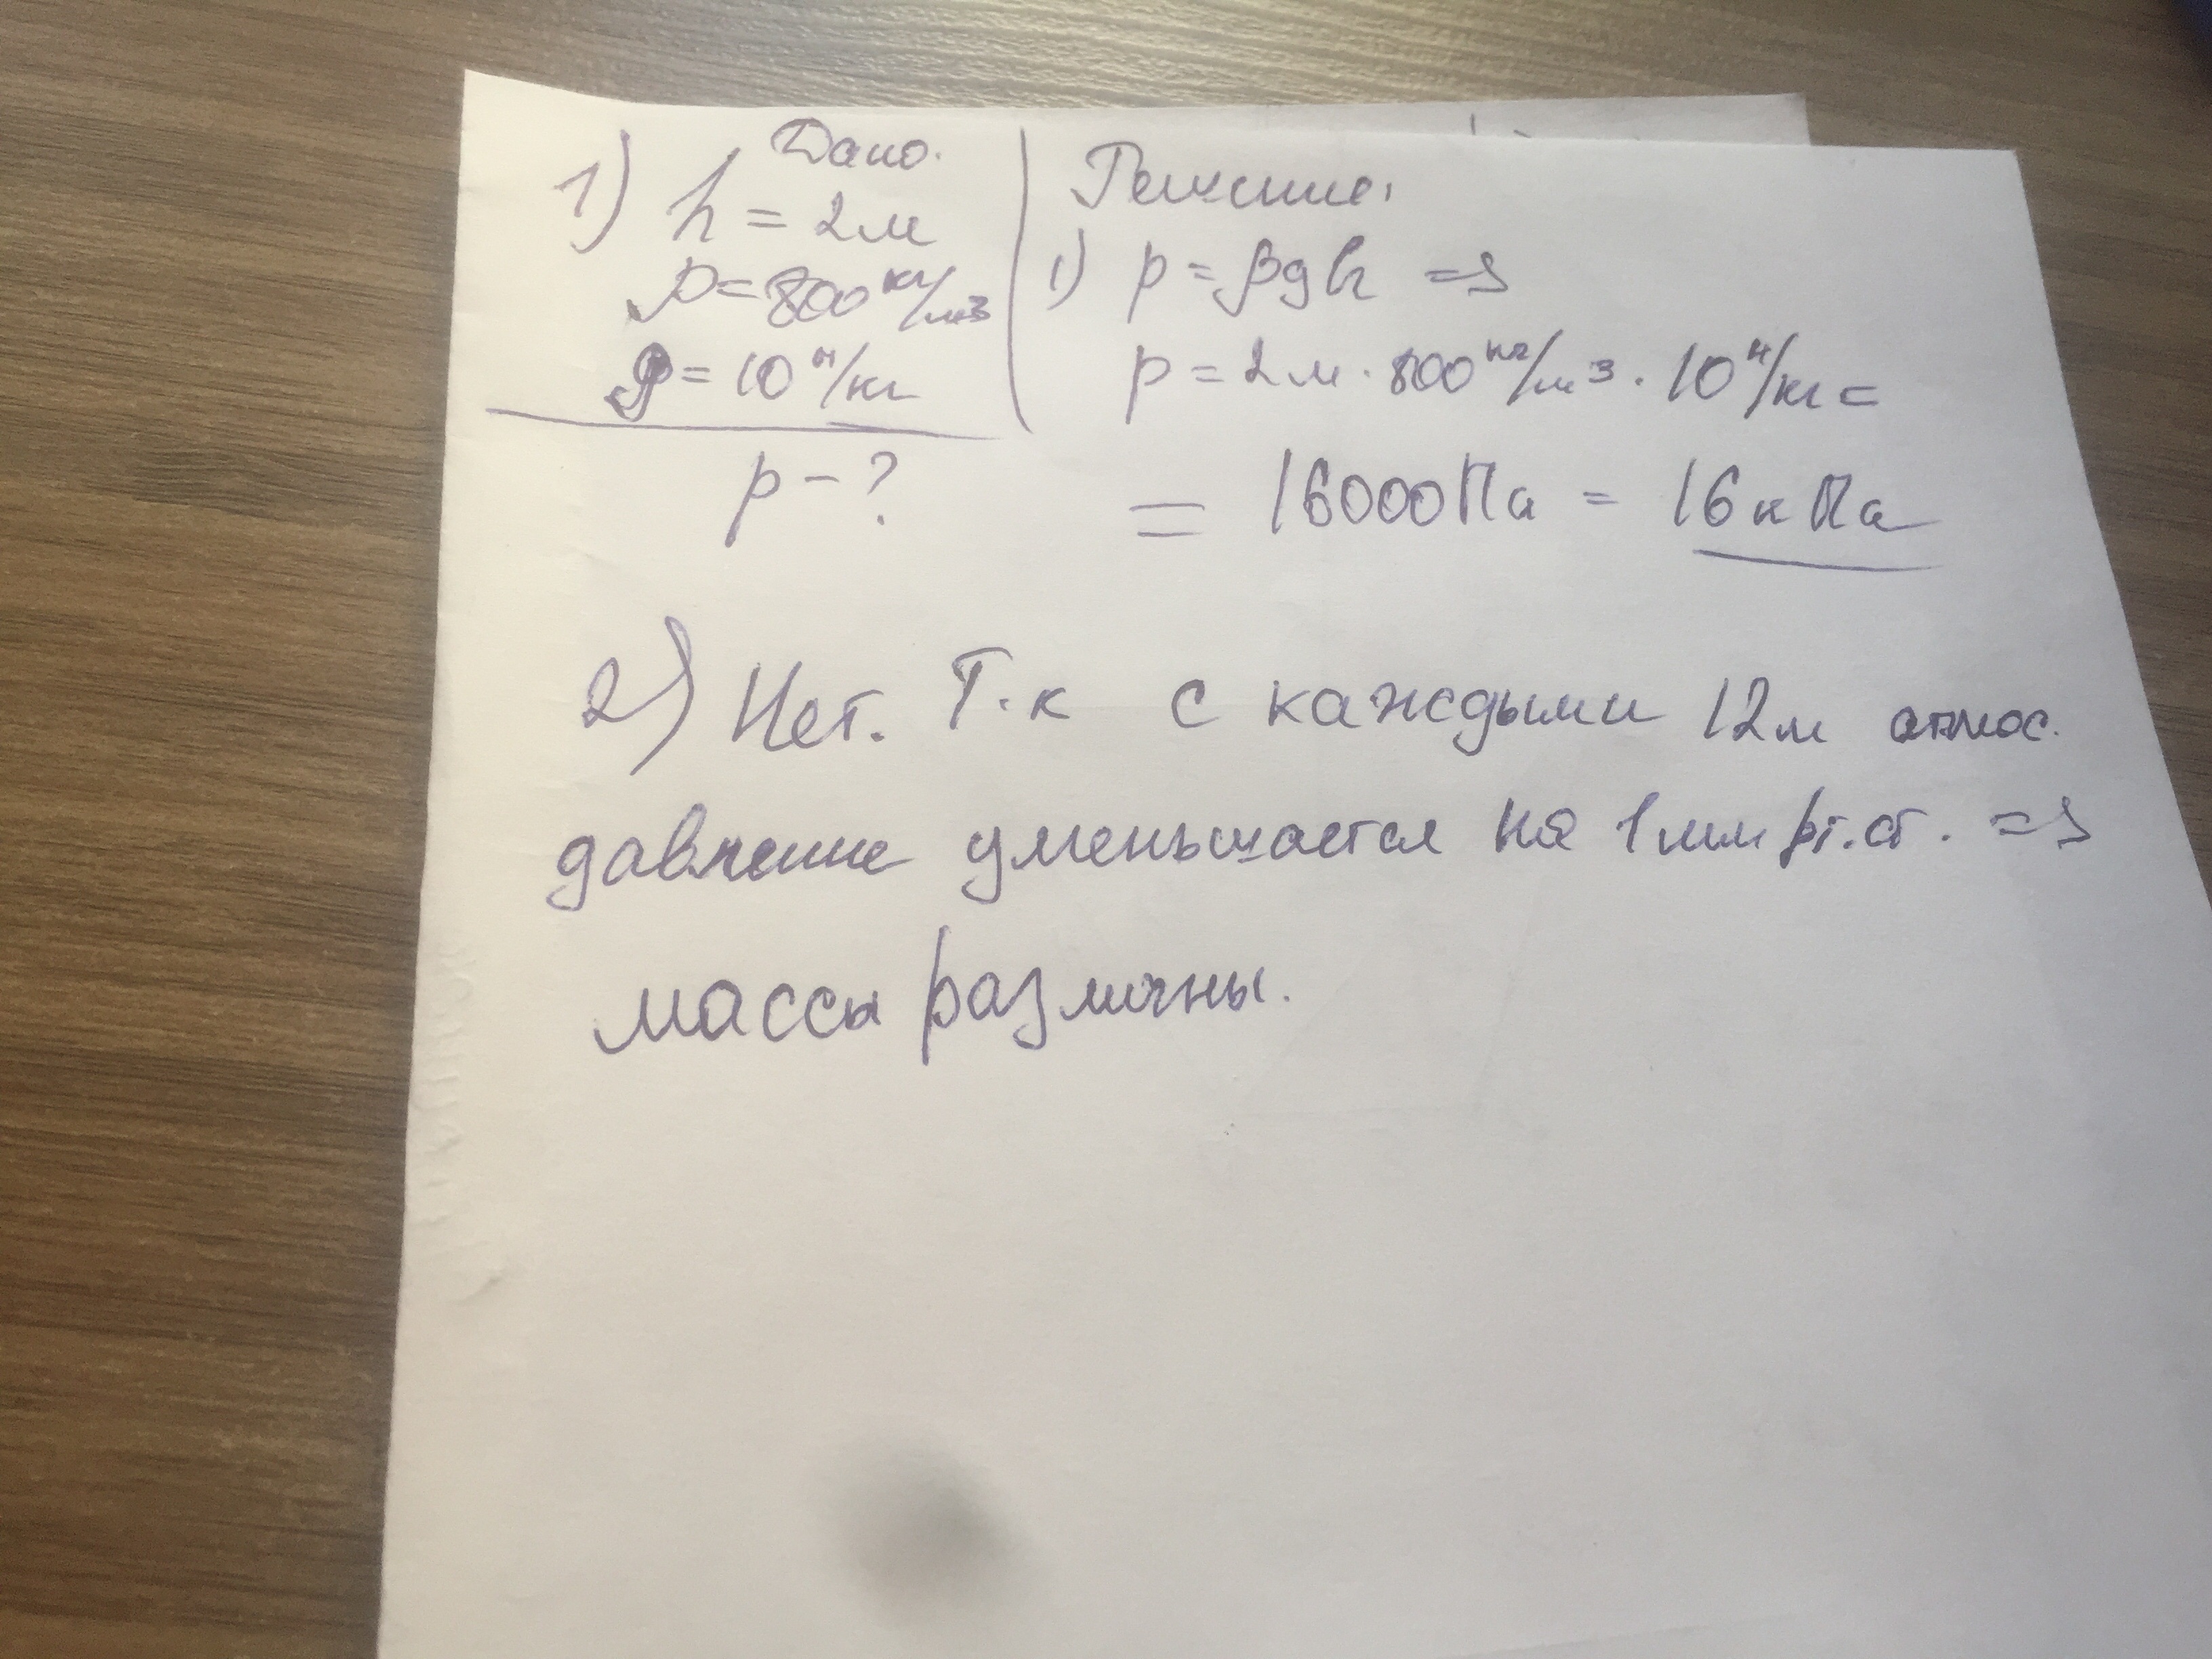 1) Дано.
h = 2м
ρ = 800 кг/м3
g = 10 н/кг
p - ?
Решение.
1) p = ρgh =>
p = 2м · 800 кг/м3 · 10 н/кг =
= 16000Па = 16кПа
2) Нет. Т.к с каждыми 12м атмос.
давление уменьшается на 1мм рт.ст. =>
массы различны.